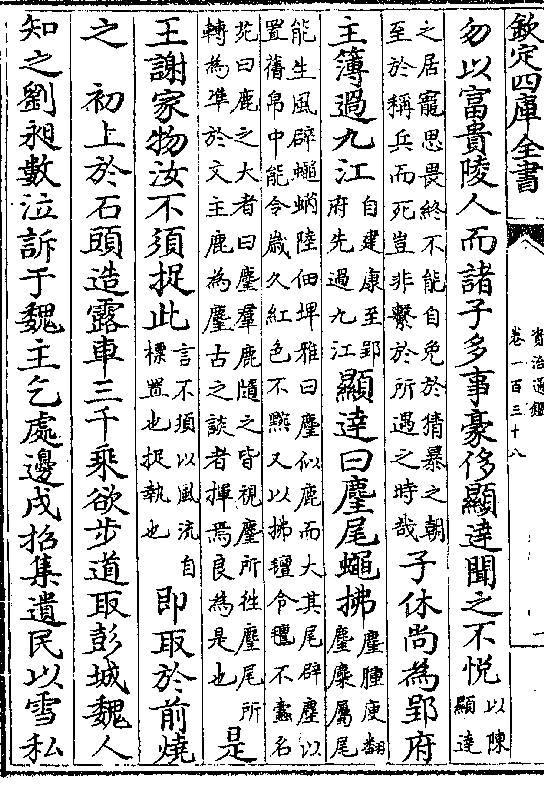 欽定四庫全書
資治通鑑
卷一百三十八
一
勿以富貴陵人而諸子多事豪侈顯達聞之不悅
以陳
顯達
之居寵思畏終不能自免於猜暴之朝
至於稱兵而死豈非繫於所遇之時哉
子休尚為郢府
主簿過九江
自建康至郢
府先過九江
顯達曰麈尾蠅拂
麈腫庾翻
麈麋屬尾
能生風辟蠅蜹陸佃埤雅曰麈似鹿而大其尾辟塵以
置蒨帛中能令歲久紅色不黦又以拂氊令氊不蠹名
苑曰鹿之大者曰麈羣鹿隨之皆視麈所往麈尾所
轉為凖於文主鹿為麈古之談者揮焉良為是也
是
王謝家物汝不須捉此
言不須以風流自
標置也捉執也
即取於前燒
之　初上於石頭造露車三千乘欲步道取彭城魏人
知之劉昶數泣訴于魏主乞處邊戍招集遺民以雪私